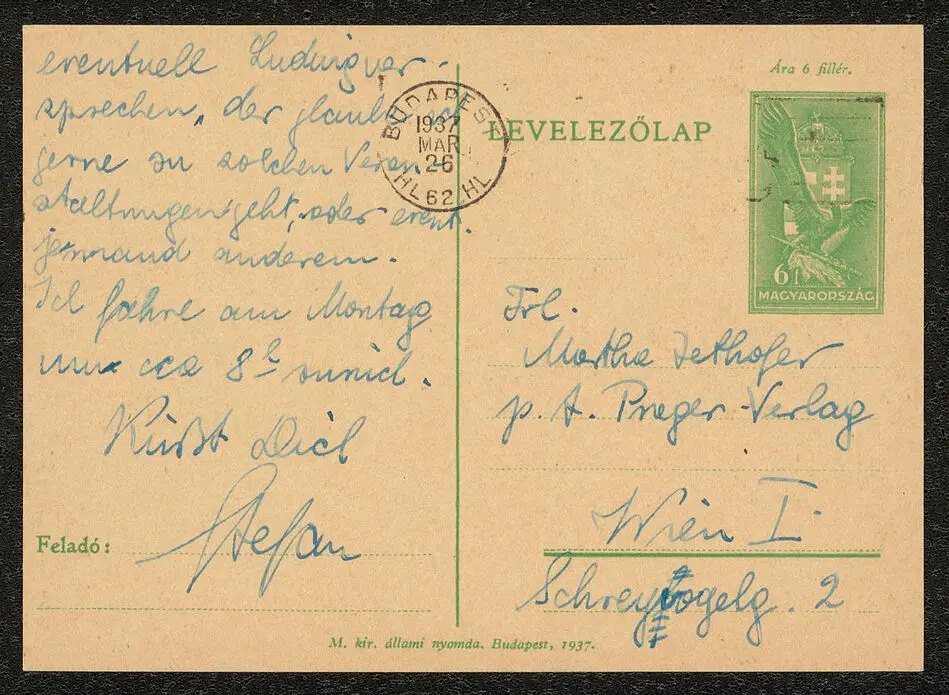 eventuell Ludwig ver-
sprechen, der glaub ich
gerne zu solchen Veran-
staltungen geht, oder event.
jemand anderem.
Ich fahre am Montag
um cca 8h zurück.
Küßt Dich
Stefan
Feladó:
BUDAPEST
1937
MAR
26
HL 62 HL
Ára 6 fillér.
LEVELEZŐLAP
6f
MAGYARORSZÁG
Frl.
Martha Tethofer
p. A. Prager Verlag
Wien I.
Schreyvogelg. 2
M. kir. állami nyomda. Budapest, 1937.